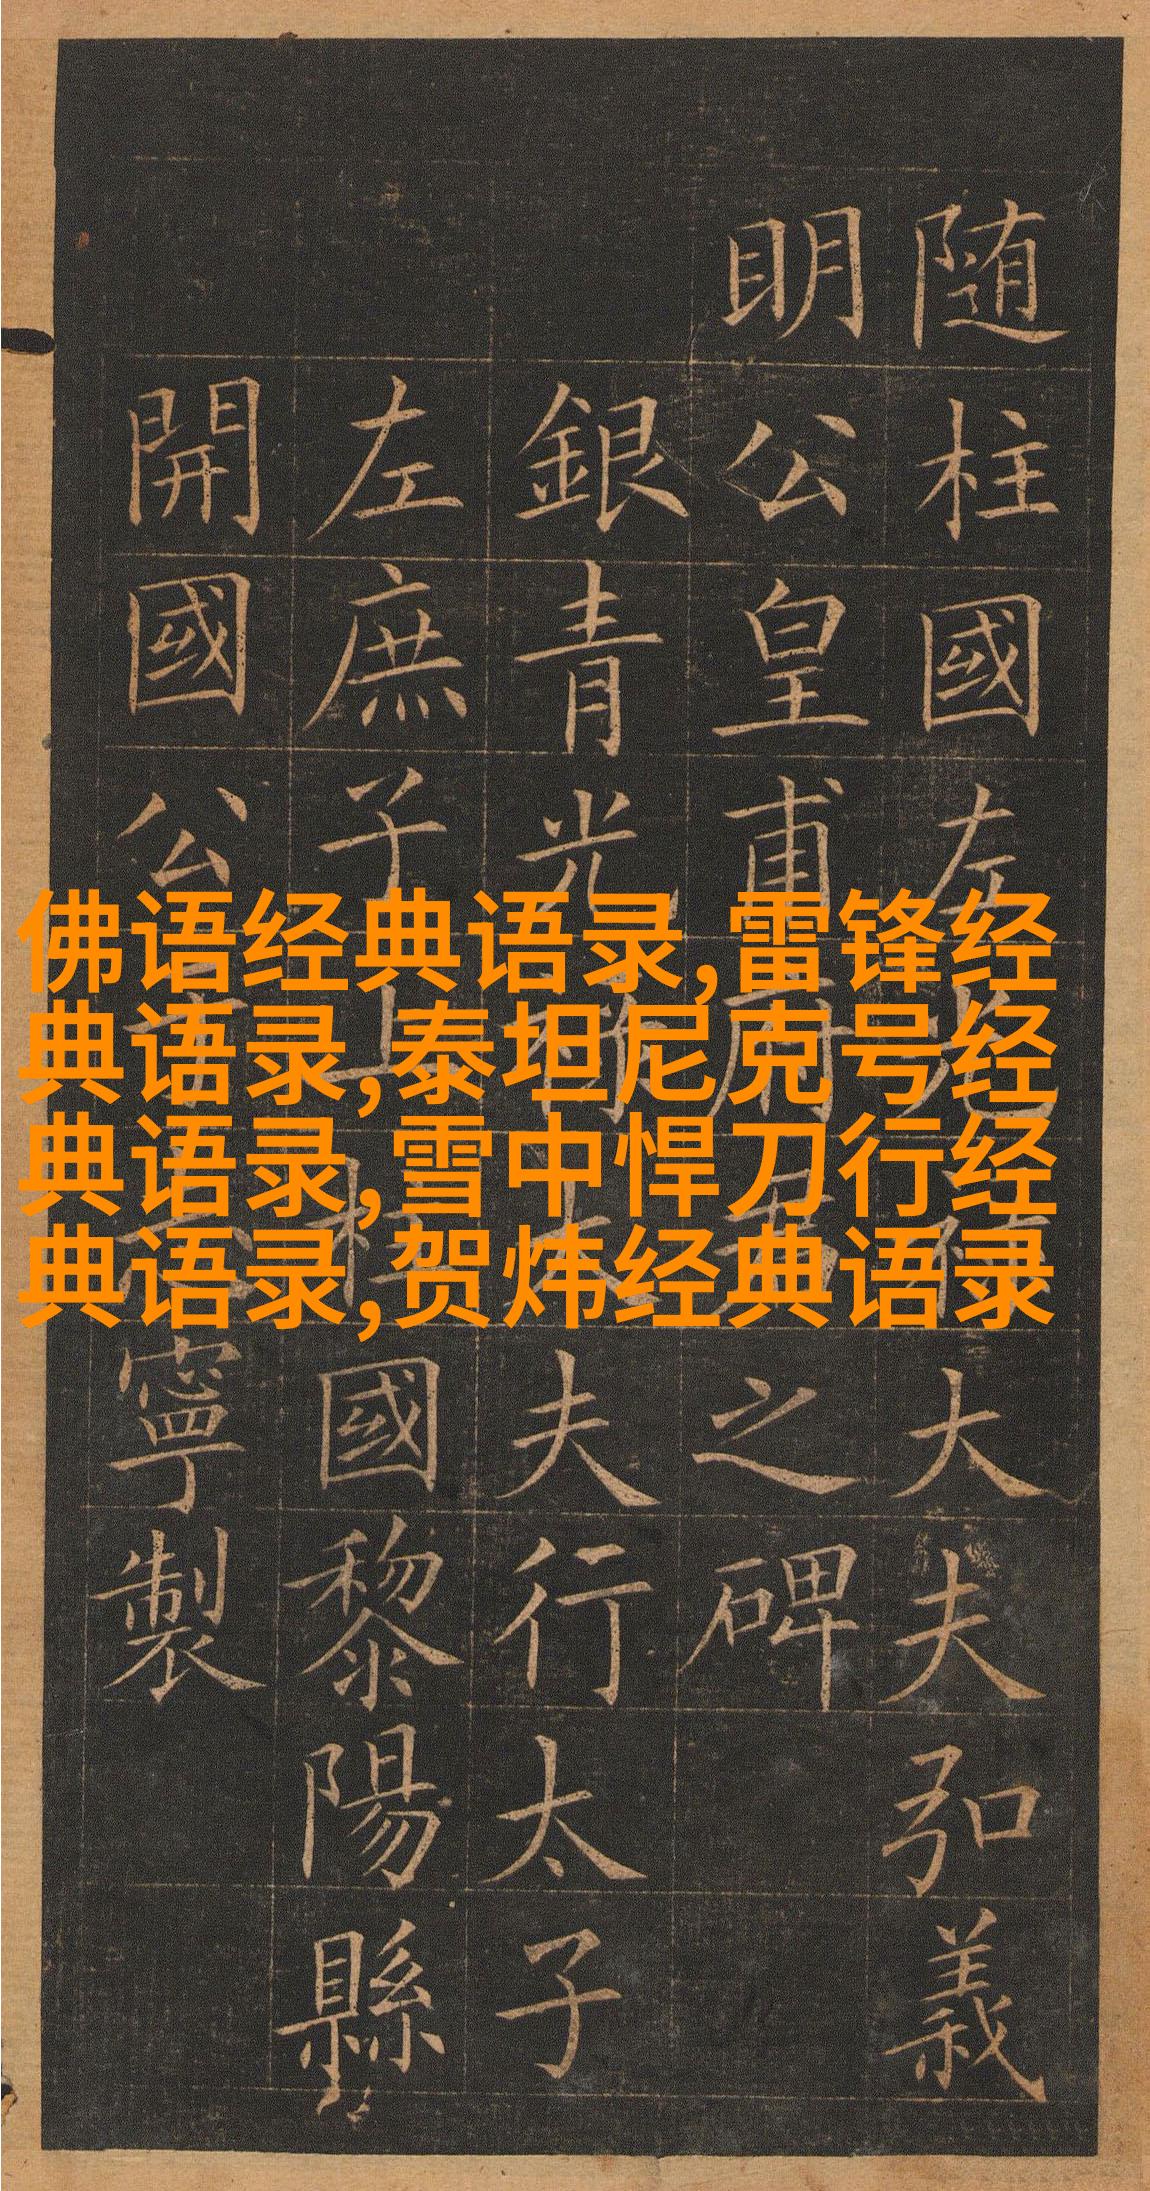 佛语经典语录,雷锋经
典语录,泰坦尼克号经
典语录,雪中悍刀行经
典语录,贺炜经典语录
随柱國左光禄大夫弘義
明公皇甫府君之碑
銀青光禄大夫行太子
左庶子上柱國黎陽縣
開國公于志寧製